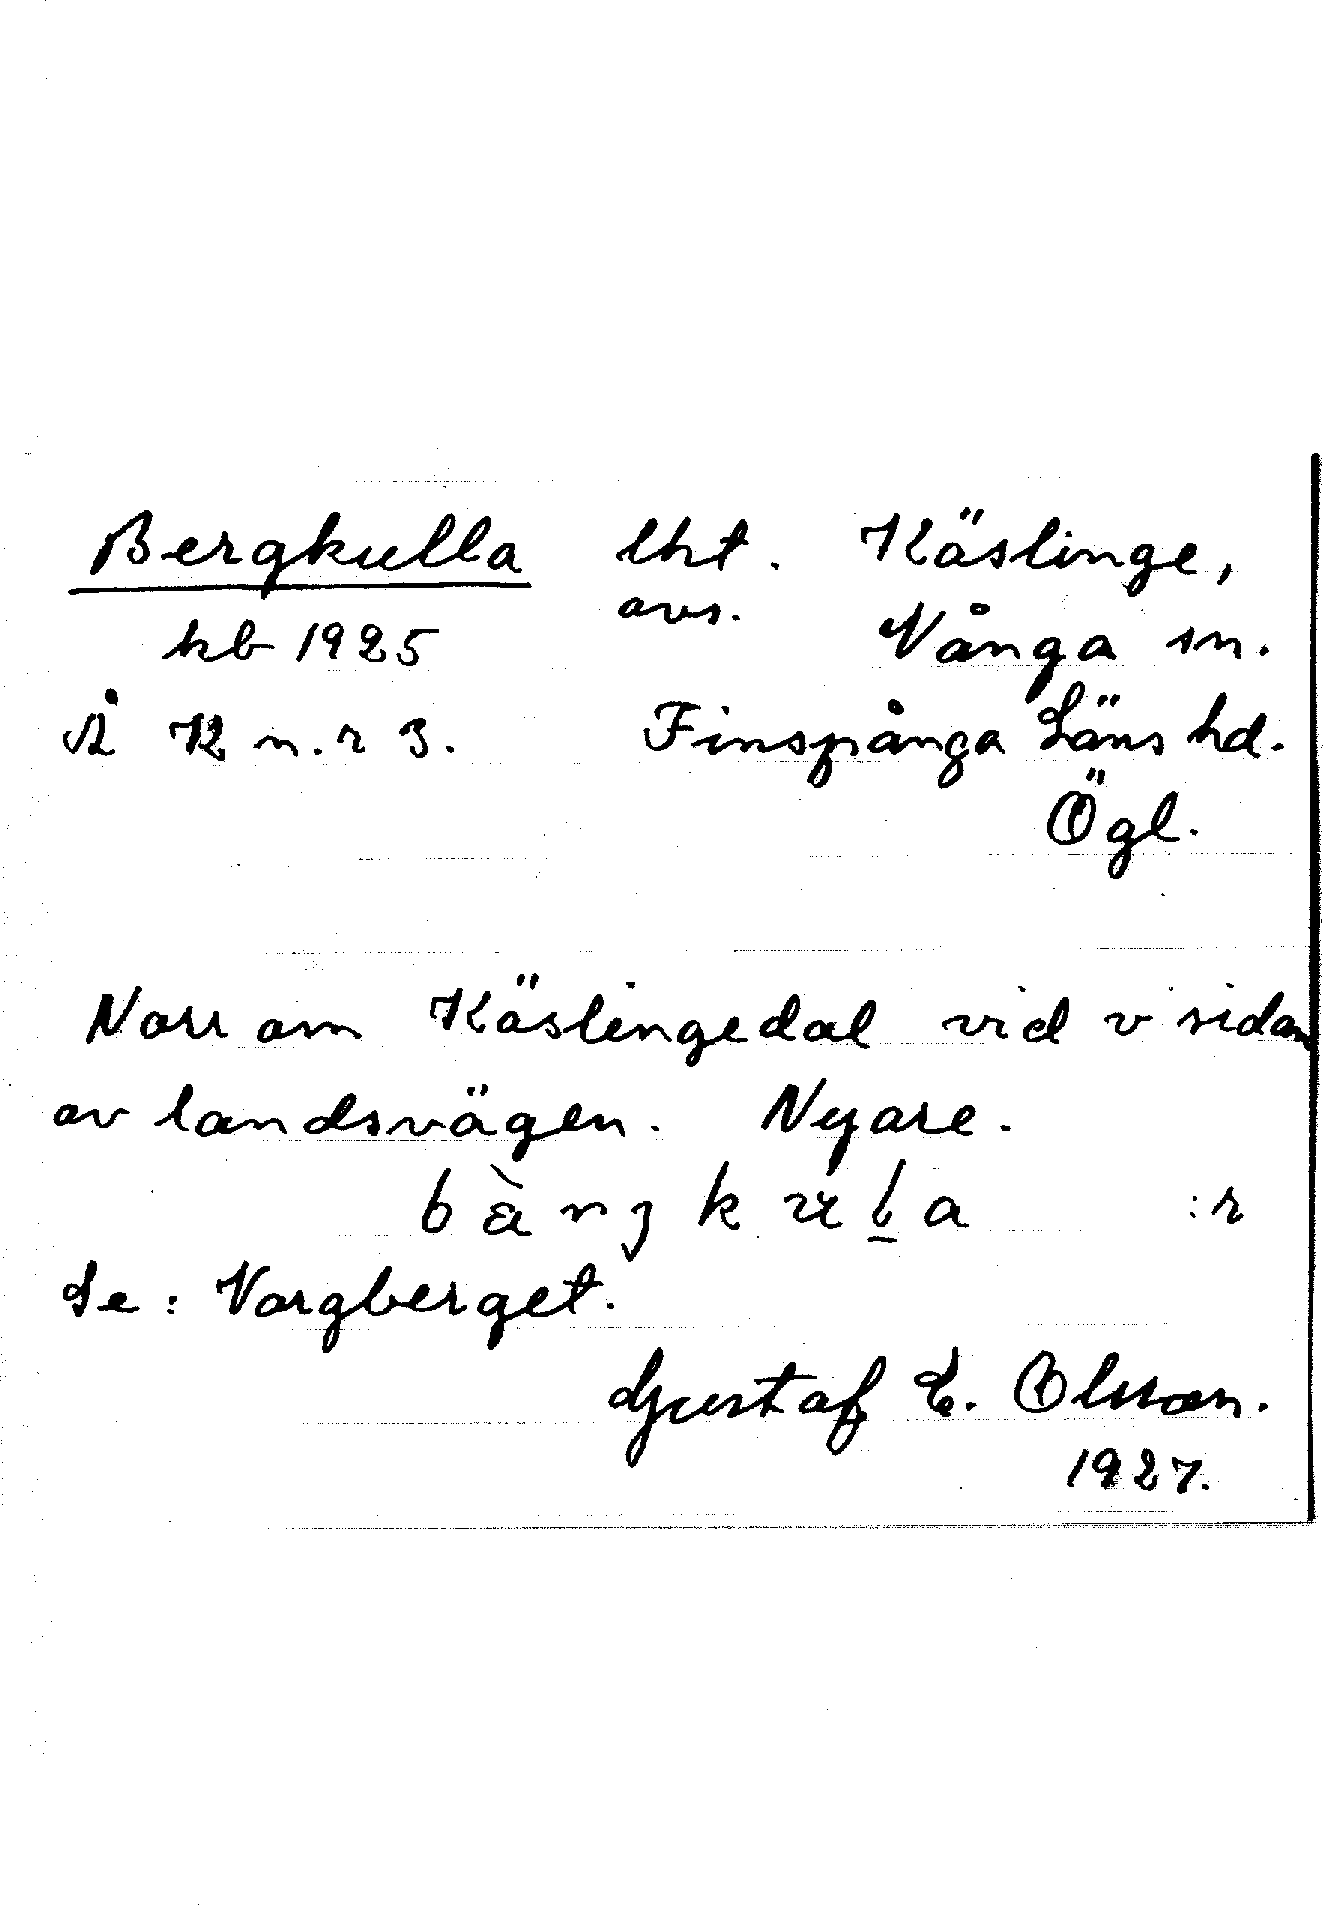 Bergkulla lht. Käslinge,
kb 1925 avs. Vånga sn.
Å K n.r 3. Finspånga Läns hd.
Ögl.
Norr om Käslingedal vid v sidan
av landsvägen. Nyare.
:r
Se: Vargberget.
Gustaf E. Olsson.
1927.